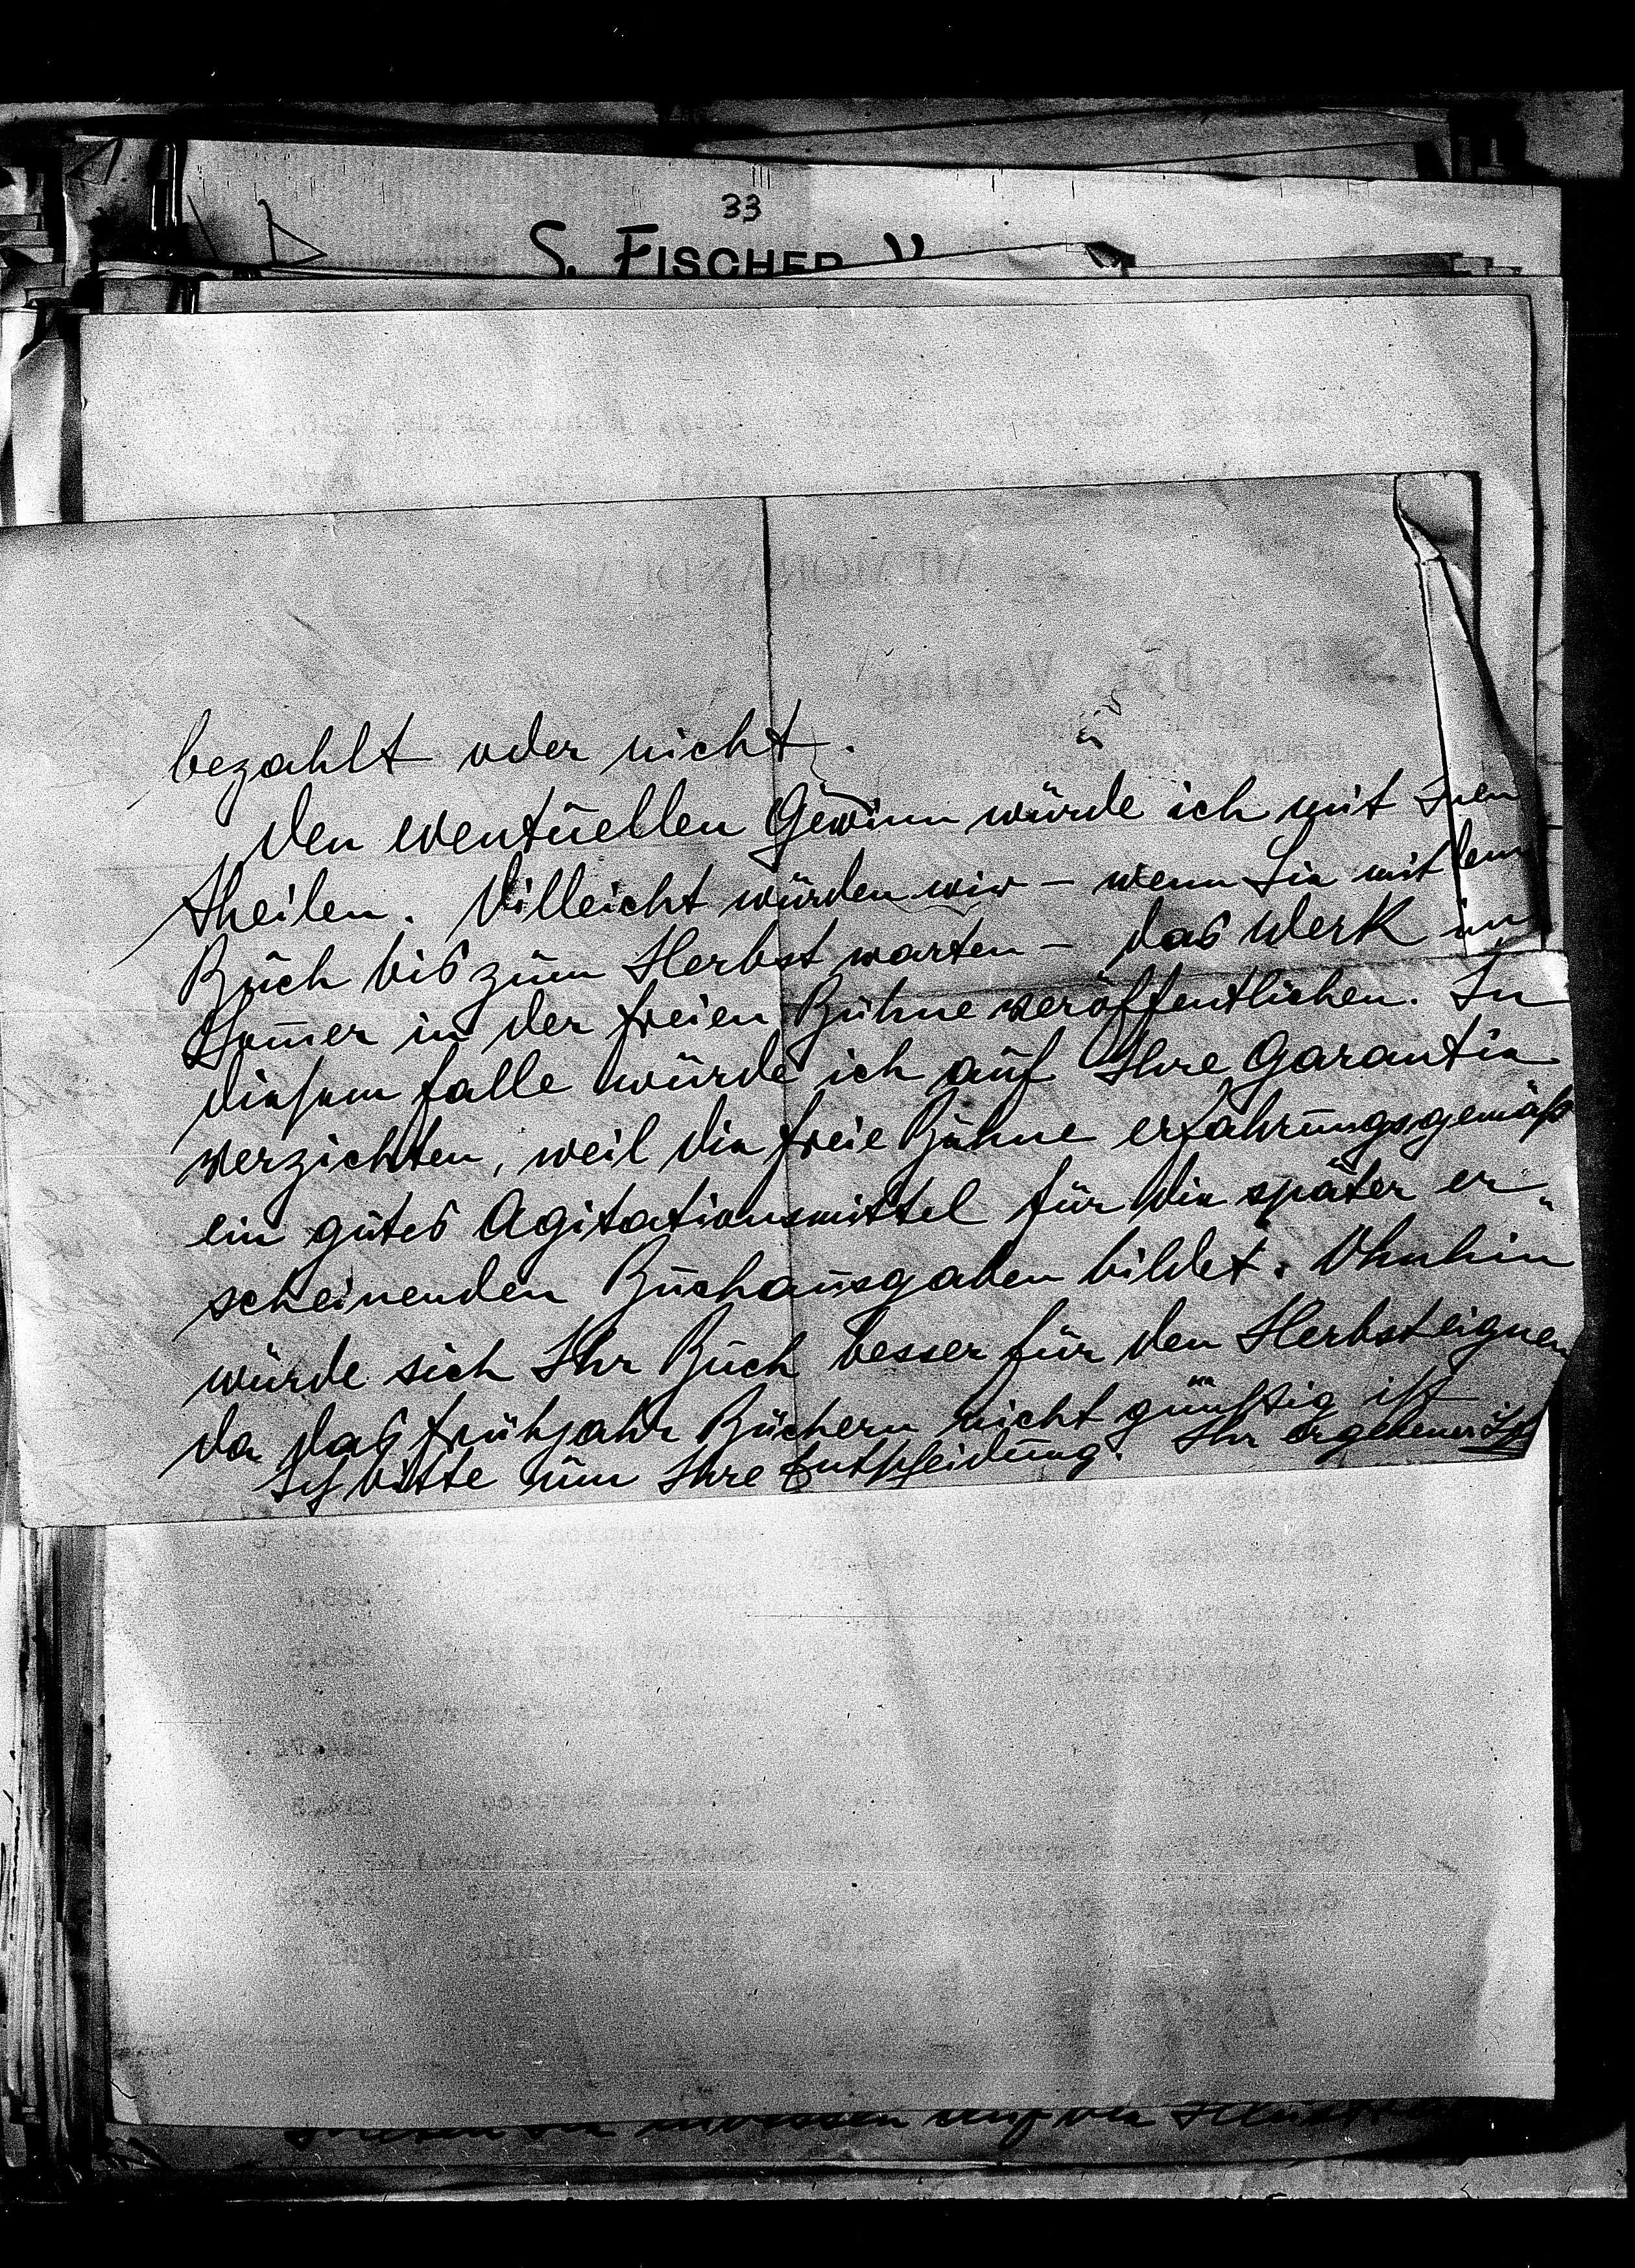 33
S. FISCHER V
bezahlt oder nicht.
Den eventuellen Gewinn würde ich mit Inen
theilen. Villeicht würden wir – wenn Sie mit dem
Buch bis zum Herbst warten – das Werk im
Som̄er in der freien Bühne veröffentlichen. In
diesem Falle würde ich auf Ihre Garantie
verzichten, weil die freie Bühne erfahrungsgemäß
ein gutes Agitationsmittel für die später er-
scheinenden Buchausgaben bildet. Ohnehin
würde sich Ihr Buch besser für den Herbst eignen
da das Frühjahr Büchern nicht günstig ist
Ich bitte um Ihre Entscheidung. Ihr ergebener